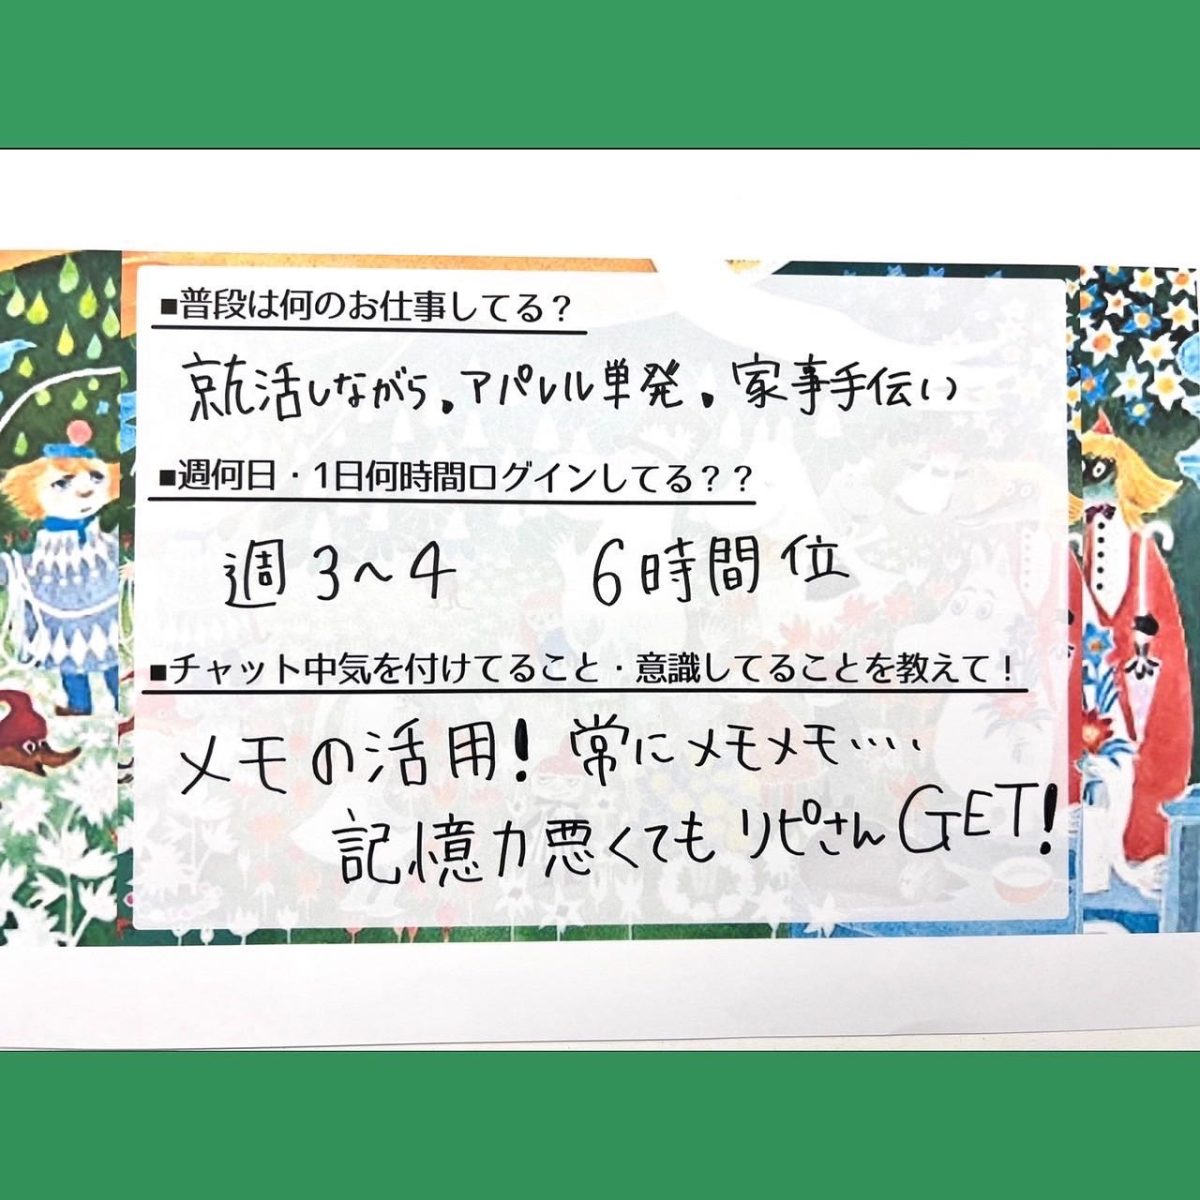 ■普段は何のお仕事してる？
就活しながら。アパレル単発。家事手伝い
■週何日・1日何時間ログインしてる？？
週3〜4 6時間位
■チャット中気を付けてること・意識してることを教えて！
メモの活用！常にメモメモ････
記憶力悪くてもリピさんGET!